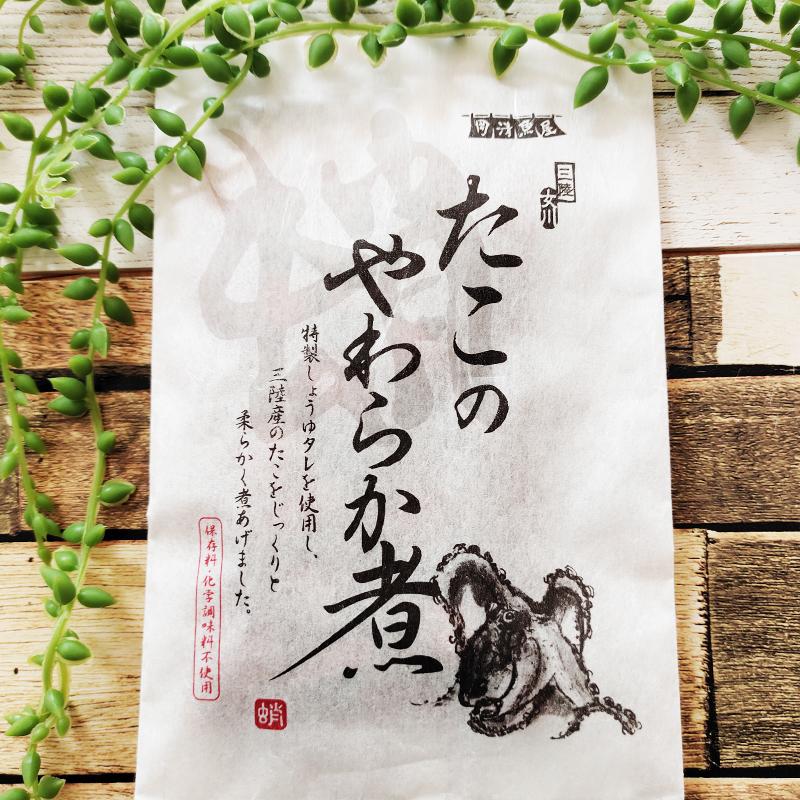 三陸
たこの
やわらか煮
特製しょうゆタレを使用し、
三陸産のたこをじっくりと
柔らかく煮あげました。
保存料・化学調味料不使用
蛸